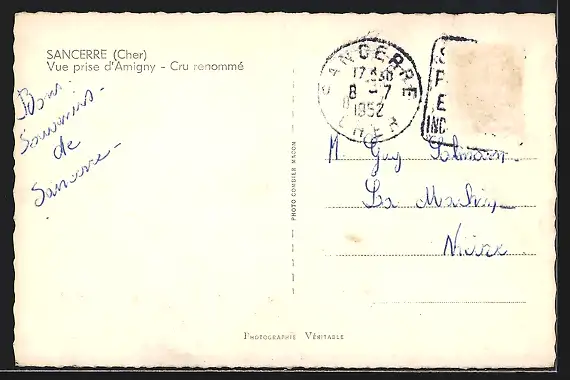 SANCERRE (Cher)
Vue prise d'Amigny - Cru renommé
Bons
Souvenirs
de
Sancerre
SANCERRE
17 30
8 - 7
1952
CHER
PHOTO COMBIER MACON
M. Guy
La
Nièvre
PHOTOGRAPHIE VÉRITABLE